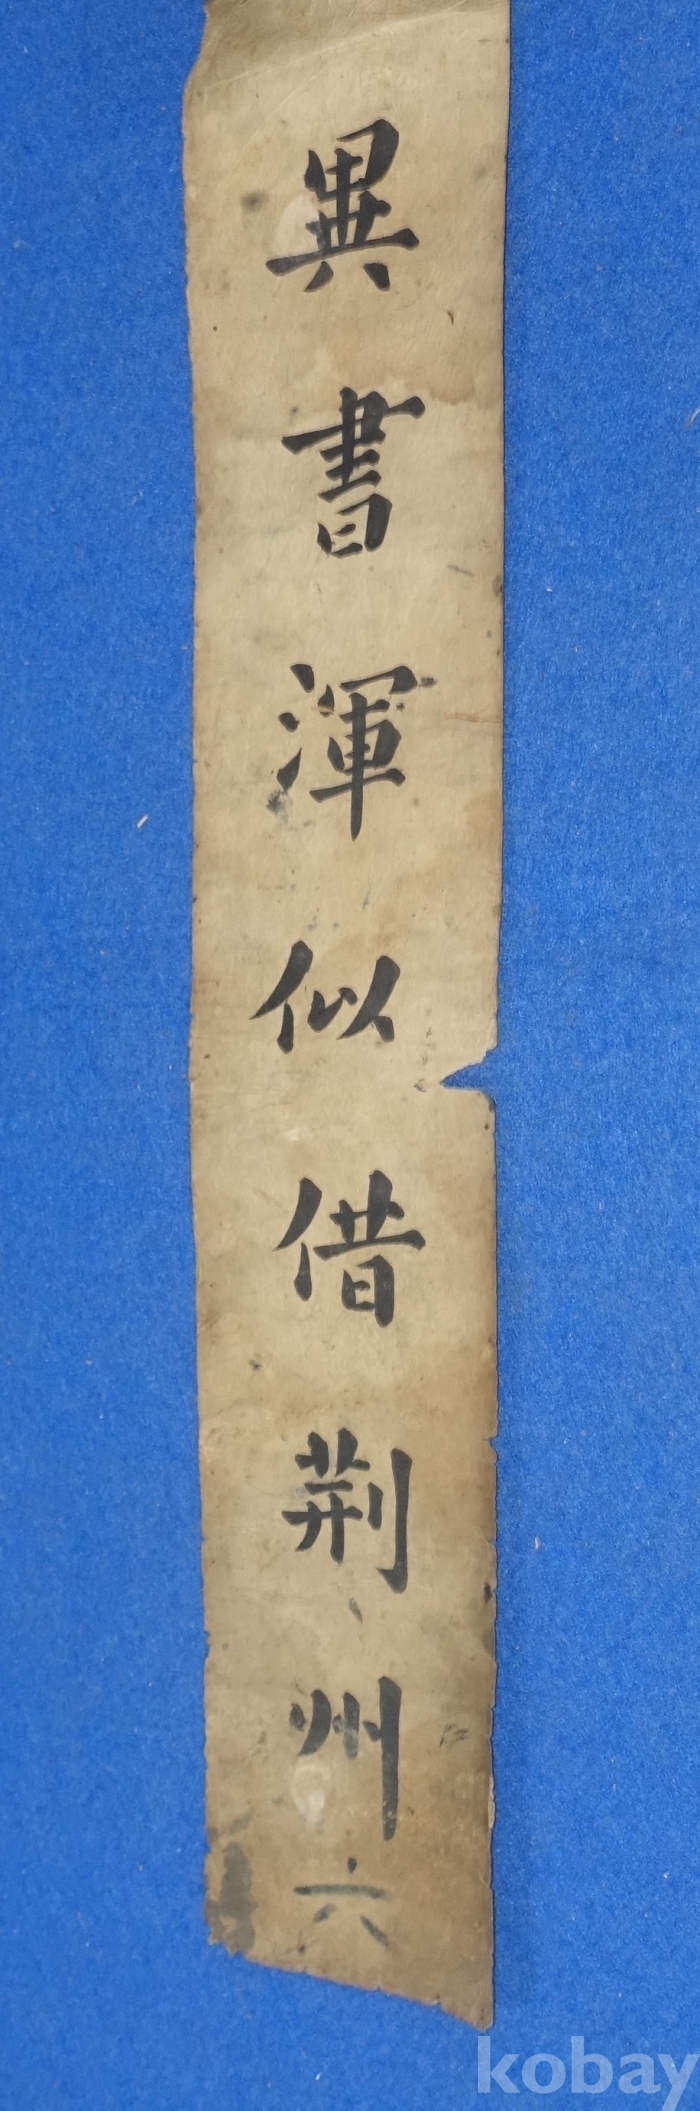 異書渾似借荆州
六
kobay